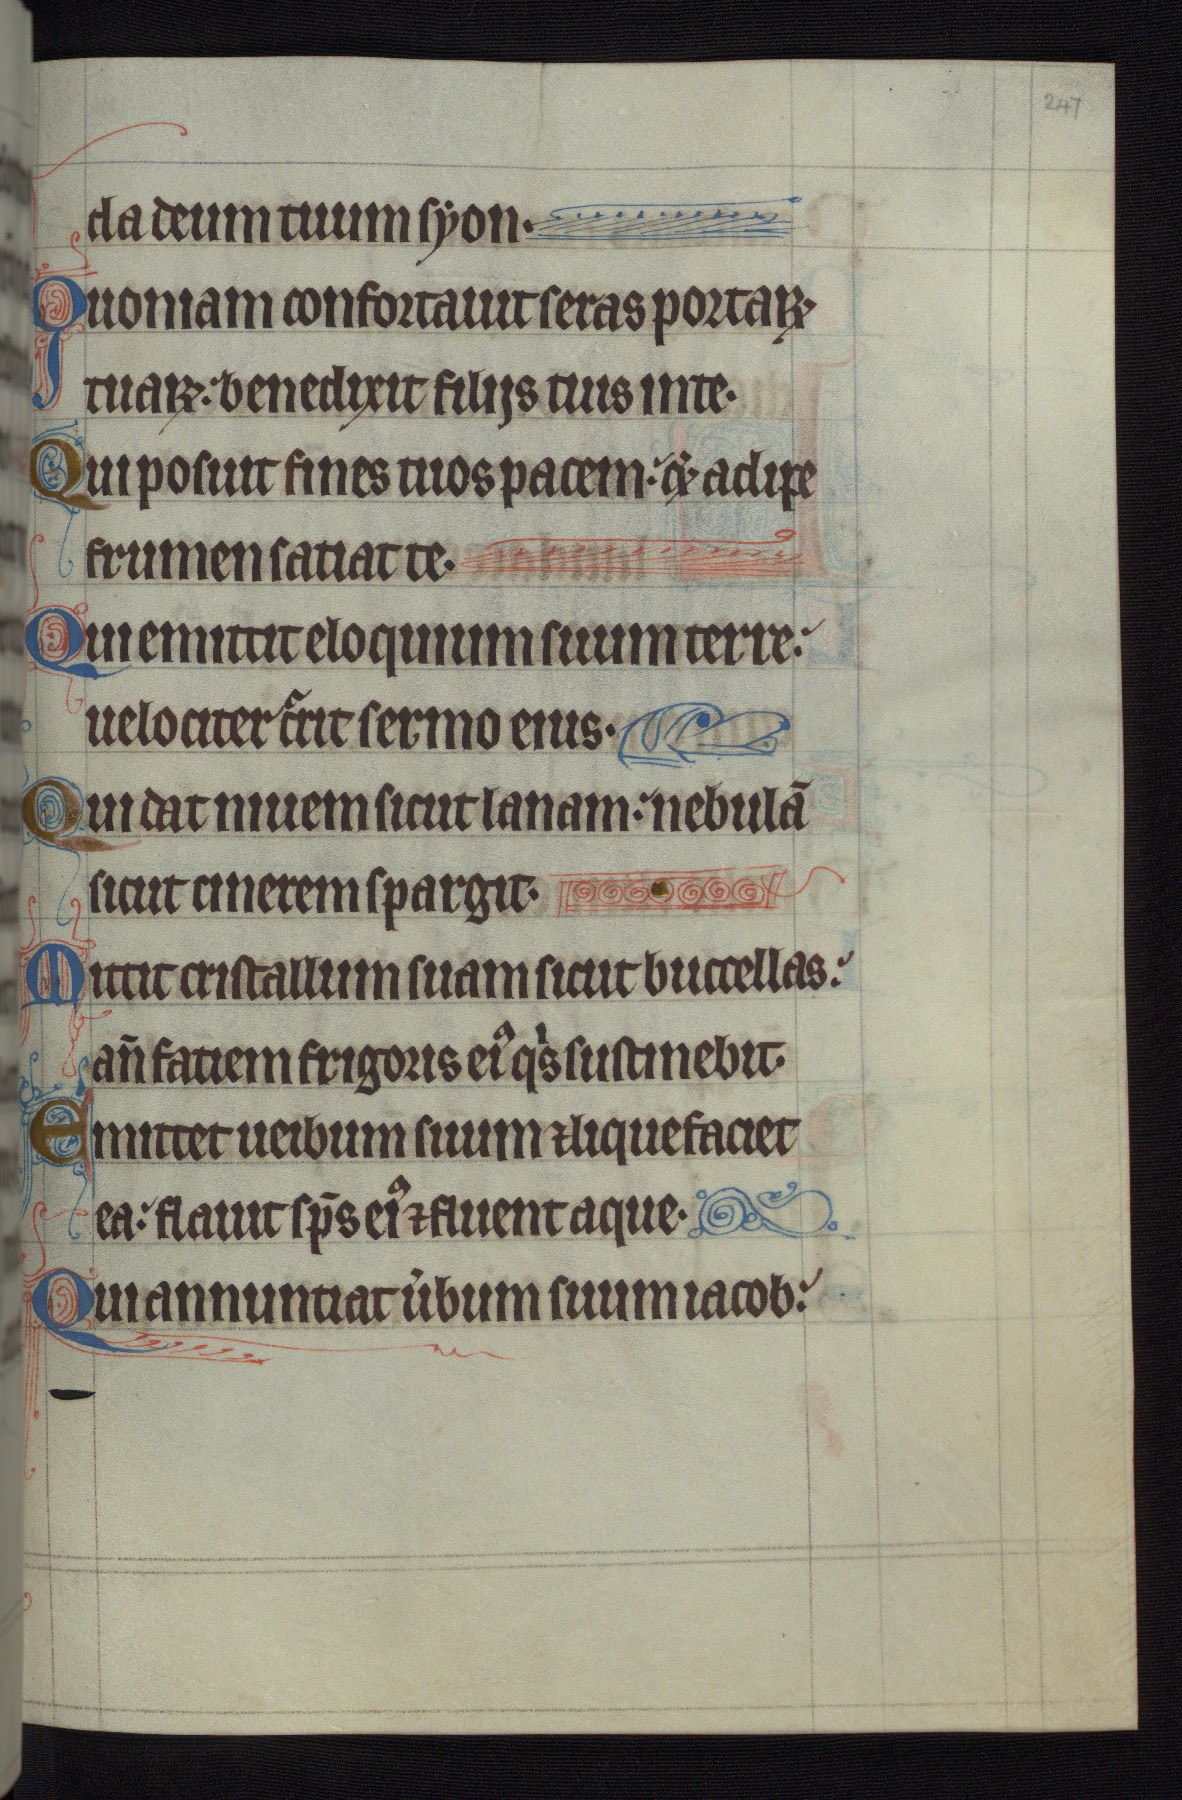 247
da deum tuum syon.
Quoniam confortauit seras portaꝝ
tuaꝝ: benedixit filijs tuis in te.
Qui posuit fines tuos pacem: & adipe
frumen satiat te.
Qui emittit eloquium suum terre:
uelociter cͣrit sermo eius.
Qui dat niuem sicut lanam: nebulā
sicut cinerem spargit.
Mittit cristallum suam sicut buccellas:
an̄ faciem frigoris eiꝰ qͥs sustinebit.
Emittet uerbum suum ⁊ liquefaciet
ea: flauit sp̄s eiꝰ ⁊ fluent aque.
Qui annuntiat u̾bum suum iacob: